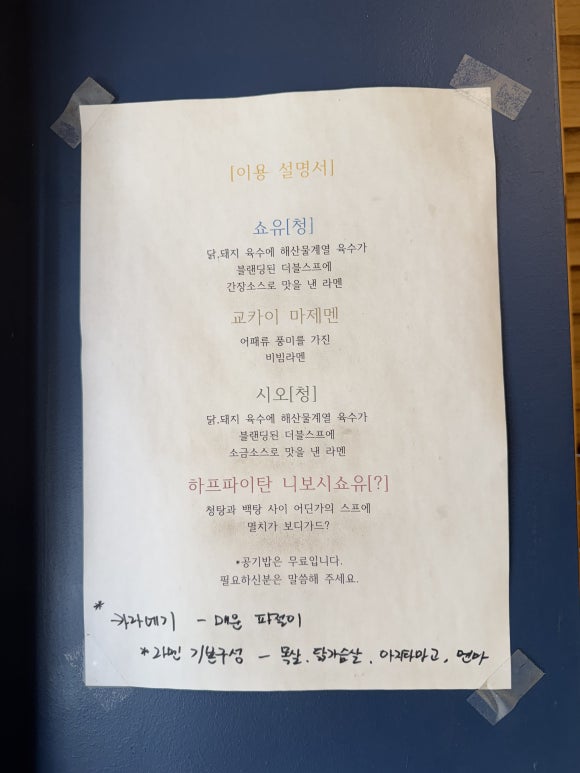 [이용 설명서]
쇼유[청]
닭,돼지 육수에 해산물계열 육수가
블랜딩된 더블스프에
간장소스로 맛을 낸 라멘
교카이 마제멘
어패류 풍미를 가진
비빔라멘
시오[청]
닭,돼지 육수에 해산물계열 육수가
블랜딩된 더블스프에
소금소스로 맛을 낸 라멘
하프파이탄 니보시쇼유[?]
청탕과 백탕 사이 어딘가의 스프에
멸치가 보디가드?
*공기밥은 무료입니다.
필요하신분은 말씀해 주세요.
* 카라네기 - 매운 파절이
* 라멘 기본구성 - 목살, 닭가슴살, 아지타마고, 멘마